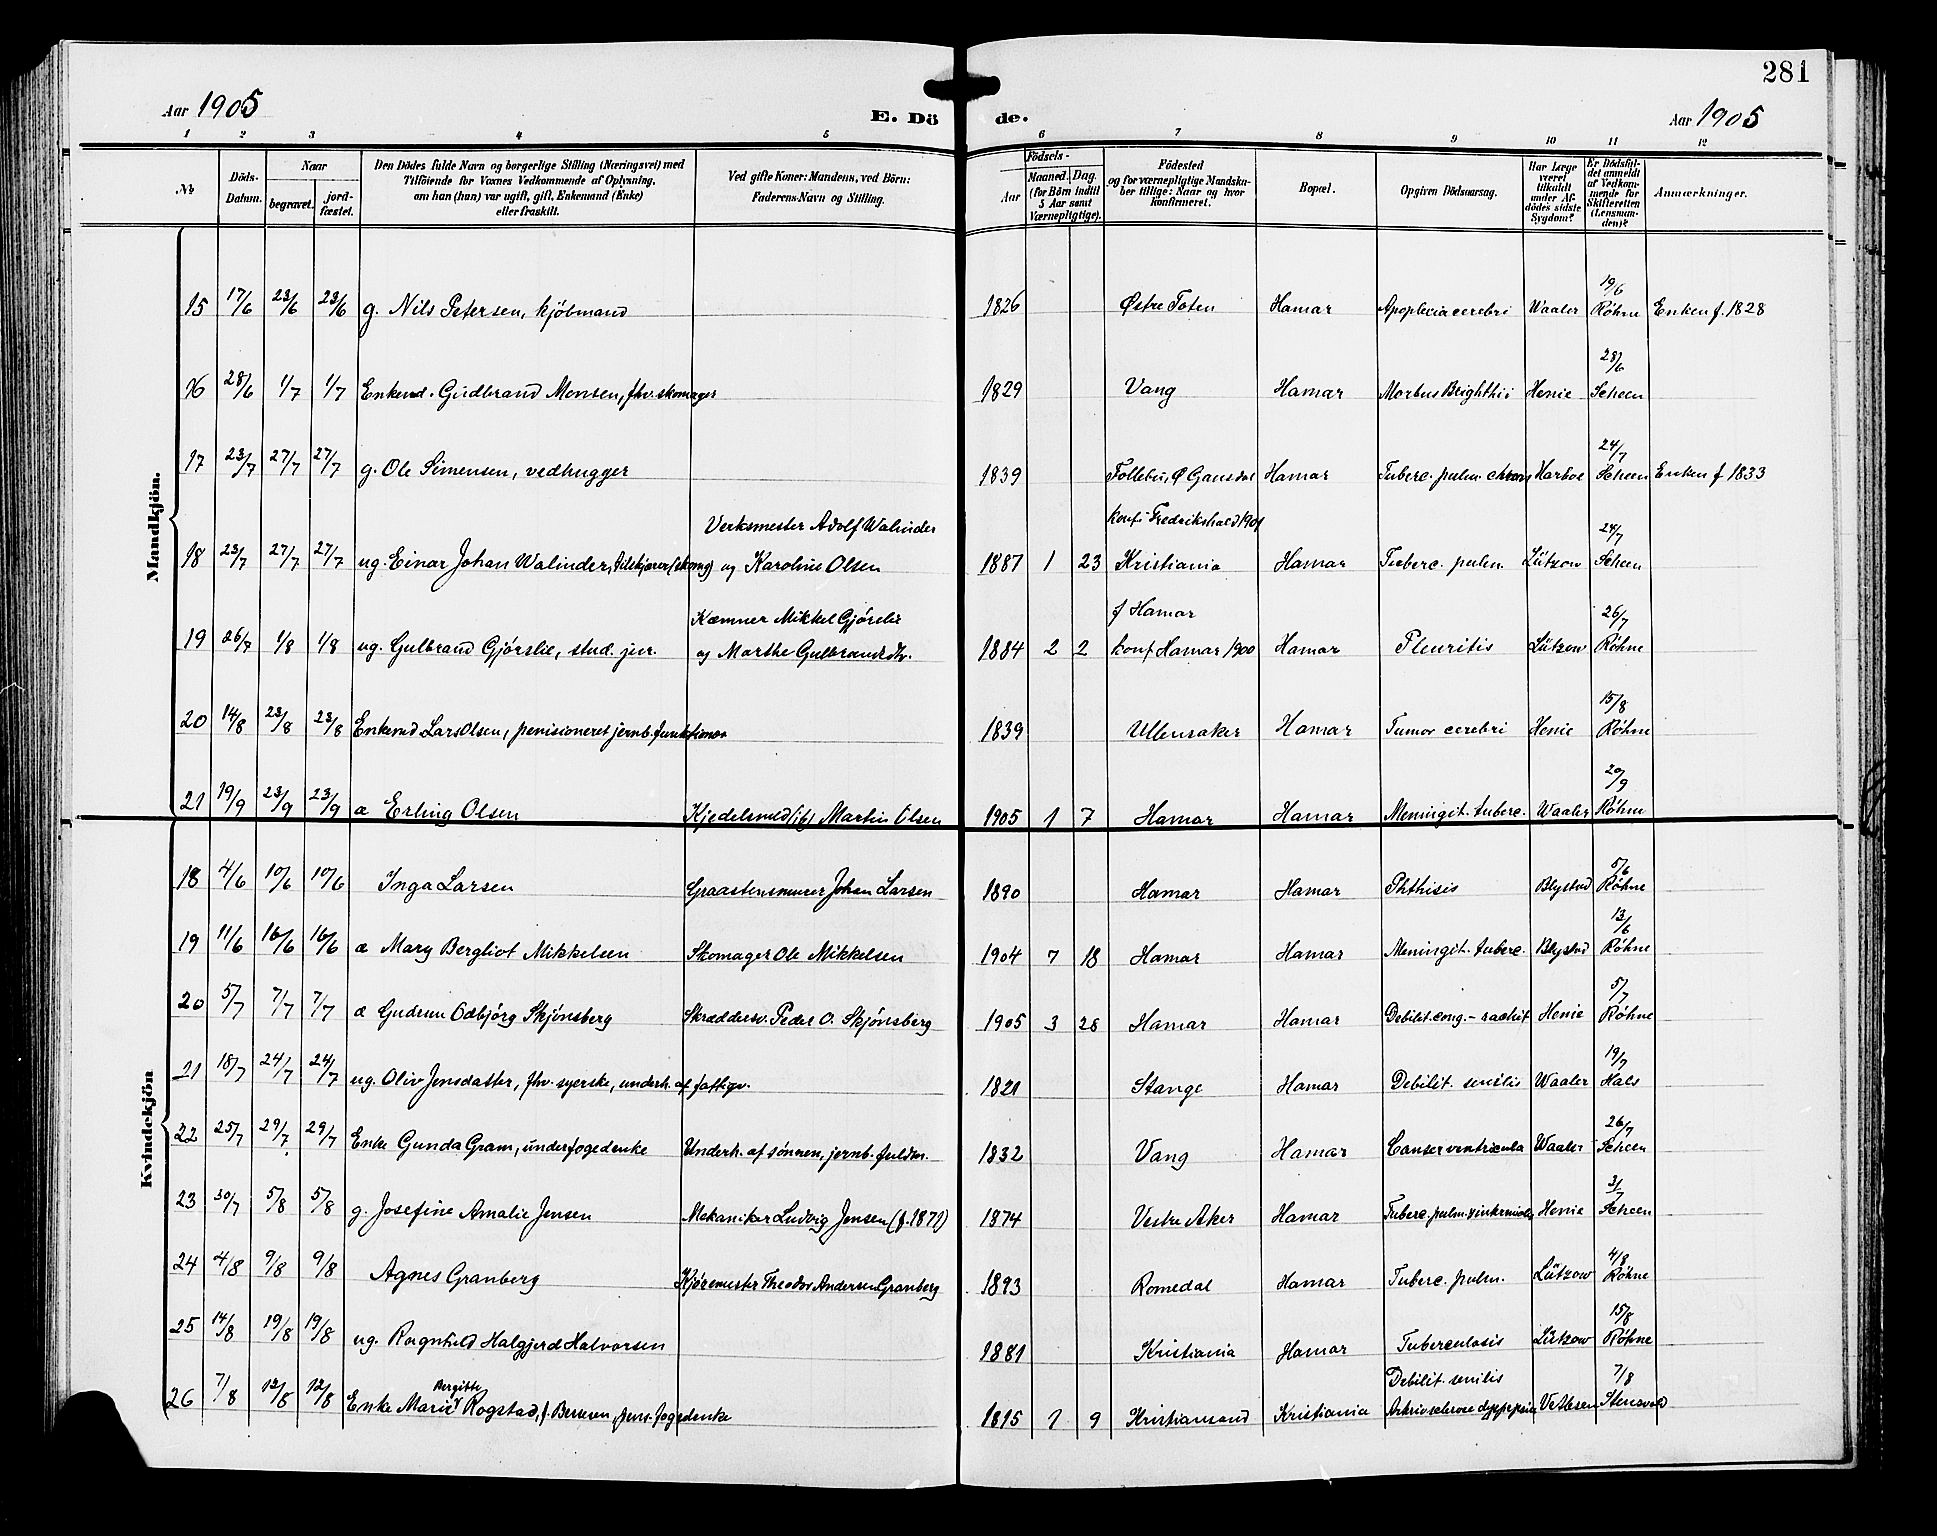 281
Aar 1905 E. Dö de. Aar 1905
1 2 3 4 5 6 7 8 9 10 11 12
No. Döds-Datum. Naar begravet. jordfæstet. Den Dödes fulde Navn og borgerlige Stilling (Næringsvei) med Tilföiende for Voxnes Vedkommende af Oplysning, om han (hun) var ugift, gift, Enkemand (Enke) eller fraskilt. Ved gifte Koner: Mandens, ved Börn: Faderens Navn og Stilling. Födsels- Aar Maaned. Dag. (for Börn indtil 5 Aar samt Værnepligtige). Födested og for værnepligtige Mandskaber tillige: Naar og hvor konfirmeret. Bopæl. Opgiven Dödsaarsag. Har Læge været tilkaldt under Afdödes sidste Sygdom? Er Dödsfaldet anmeldt af Vedkommende for Skifteretten (Lensmanden)? Anmærkninger.
Mandkjön.
15 17/6 23/6 23/6 g. Nils Petersen, kjöbmand 1826 Østre Toten Hamar Apoplexia cerebri Waaler 19/6 Röhne Enken f. 1828
16 28/6 1/7 1/7 Enkemd. Gudbrand Monsen, fhv. skomager 1829 Vang Hamar Morbus Brighthii Henie 28/6 Scheen
17 23/7 27/7 27/7 g. Ole Simensen, vedhugger 1839 Follebu, Ø Gausdal Hamar Tuberc. pulm. chron Harboe 24/7 Scheen Enken f 1833
18 23/7 27/7 27/7 ug. Einar Johan Walinder, tilskjærer (skomg) Verksmester Adolf Walinder og Karoline Olsen 1887 1 23 konf. Fredrikshald 1901 Kristiania Hamar Tuberc. pulm. Lützow 24/7 Scheen
19 26/7 1/8 1/8 ug. Gulbrand Gjörslie, stud. jur. Kæmner Mikkel Gjörslie og Marthe Gulbrandsdtr. 1884 2 2 f Hamar konf Hamar 1900 Hamar Pleuritis Lützow 26/7 Röhne
20 14/8 23/8 23/8 Enkemd Lars Olsen, pensioneret jernb. funktionær 1839 Ullensaker Hamar Tumor cerebri Henie 15/8 Röhne
21 19/9 23/9 23/9 æ Erling Olsen Kjedelsmed Martin Olsen 1905 1 7 Hamar Hamar Meningit. tuberc. Waaler 20/9 Röhne
Kvindekjön
18 4/6 10/6 10/6 Inga Larsen Graastensmurer Johan Larsen 1890 Hamar Hamar Phthisis Blystad 5/6 Röhne
19 11/6 16/6 16/6 æ Mary Bergliot Mikkelsen Skomager Ole Mikkelsen 1904 7 18 Hamar Hamar Meningit. tuberc. Blystad 13/6 Röhne
20 5/7 7/7 7/7 æ Gudrun Odbjörg Skjönsberg Skræddersv. Peder O. Skjönsberg 1905 3 28 Hamar Hamar Debilit. cong. - rachit Henie 5/7 Röhne
21 18/7 24/7 24/7 ug. Oliv Jensdatter, fhv. syerske, underh. af fattigv. 1821 Stange Hamar Debilit. senilis Waaler 19/7 Hals
22 25/7 29/7 29/7 Enke Gunda Gram, underfogedenke Underh. af sönnen, jernb. fuldm. 1832 Vang Hamar Canser ventricula Waaler 26/7 Scheen
23 30/7 5/8 5/8 g. Josefine Amalie Jensen Mekaniker Ludvig Jensen (f. 1871) 1874 Vestre Aker Hamar Tuberc. pulm. Henie 31/7 Scheen
24 4/8 9/8 9/8 Agnes Granberg Kjöremester Theodor Andersen Granberg 1893 Romedal Hamar Tuberc. pulm. Lützow 4/8 Röhne
25 14/8 19/8 19/8 ug. Ragnhild Halgjerd Halvorsen 1881 Kristiania Hamar Tuberculosis Lützow 15/8 Röhne
26 7/8 12/8 12/8 Enke Marie Bergitte Rogstad, f. fogedenke 1815 1 9 Kristiansand Kristiania Debilit. senilis 7/8